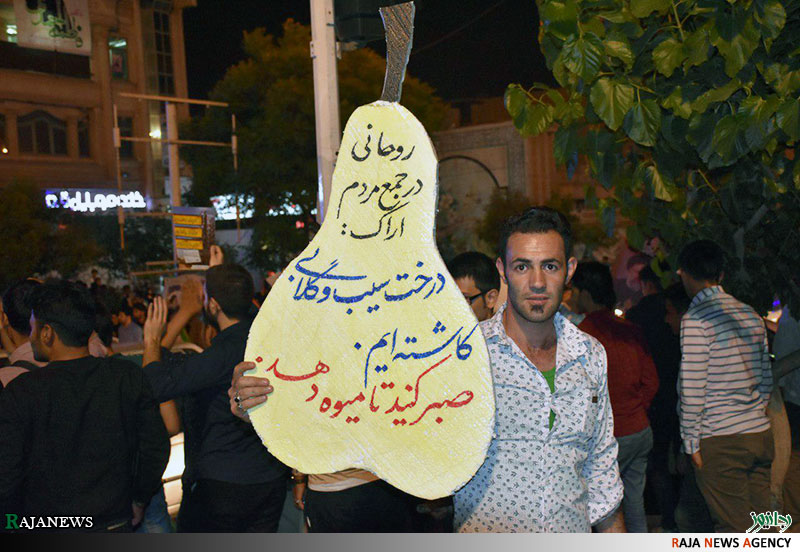 روحانی
در جمع مردم
اراک:
درخت سیب و گلابی
کاشته ایم.
صبر کنید تا میوه دهد.
RAJANEWS
رجانیوز
RAJA NEWS AGENCY